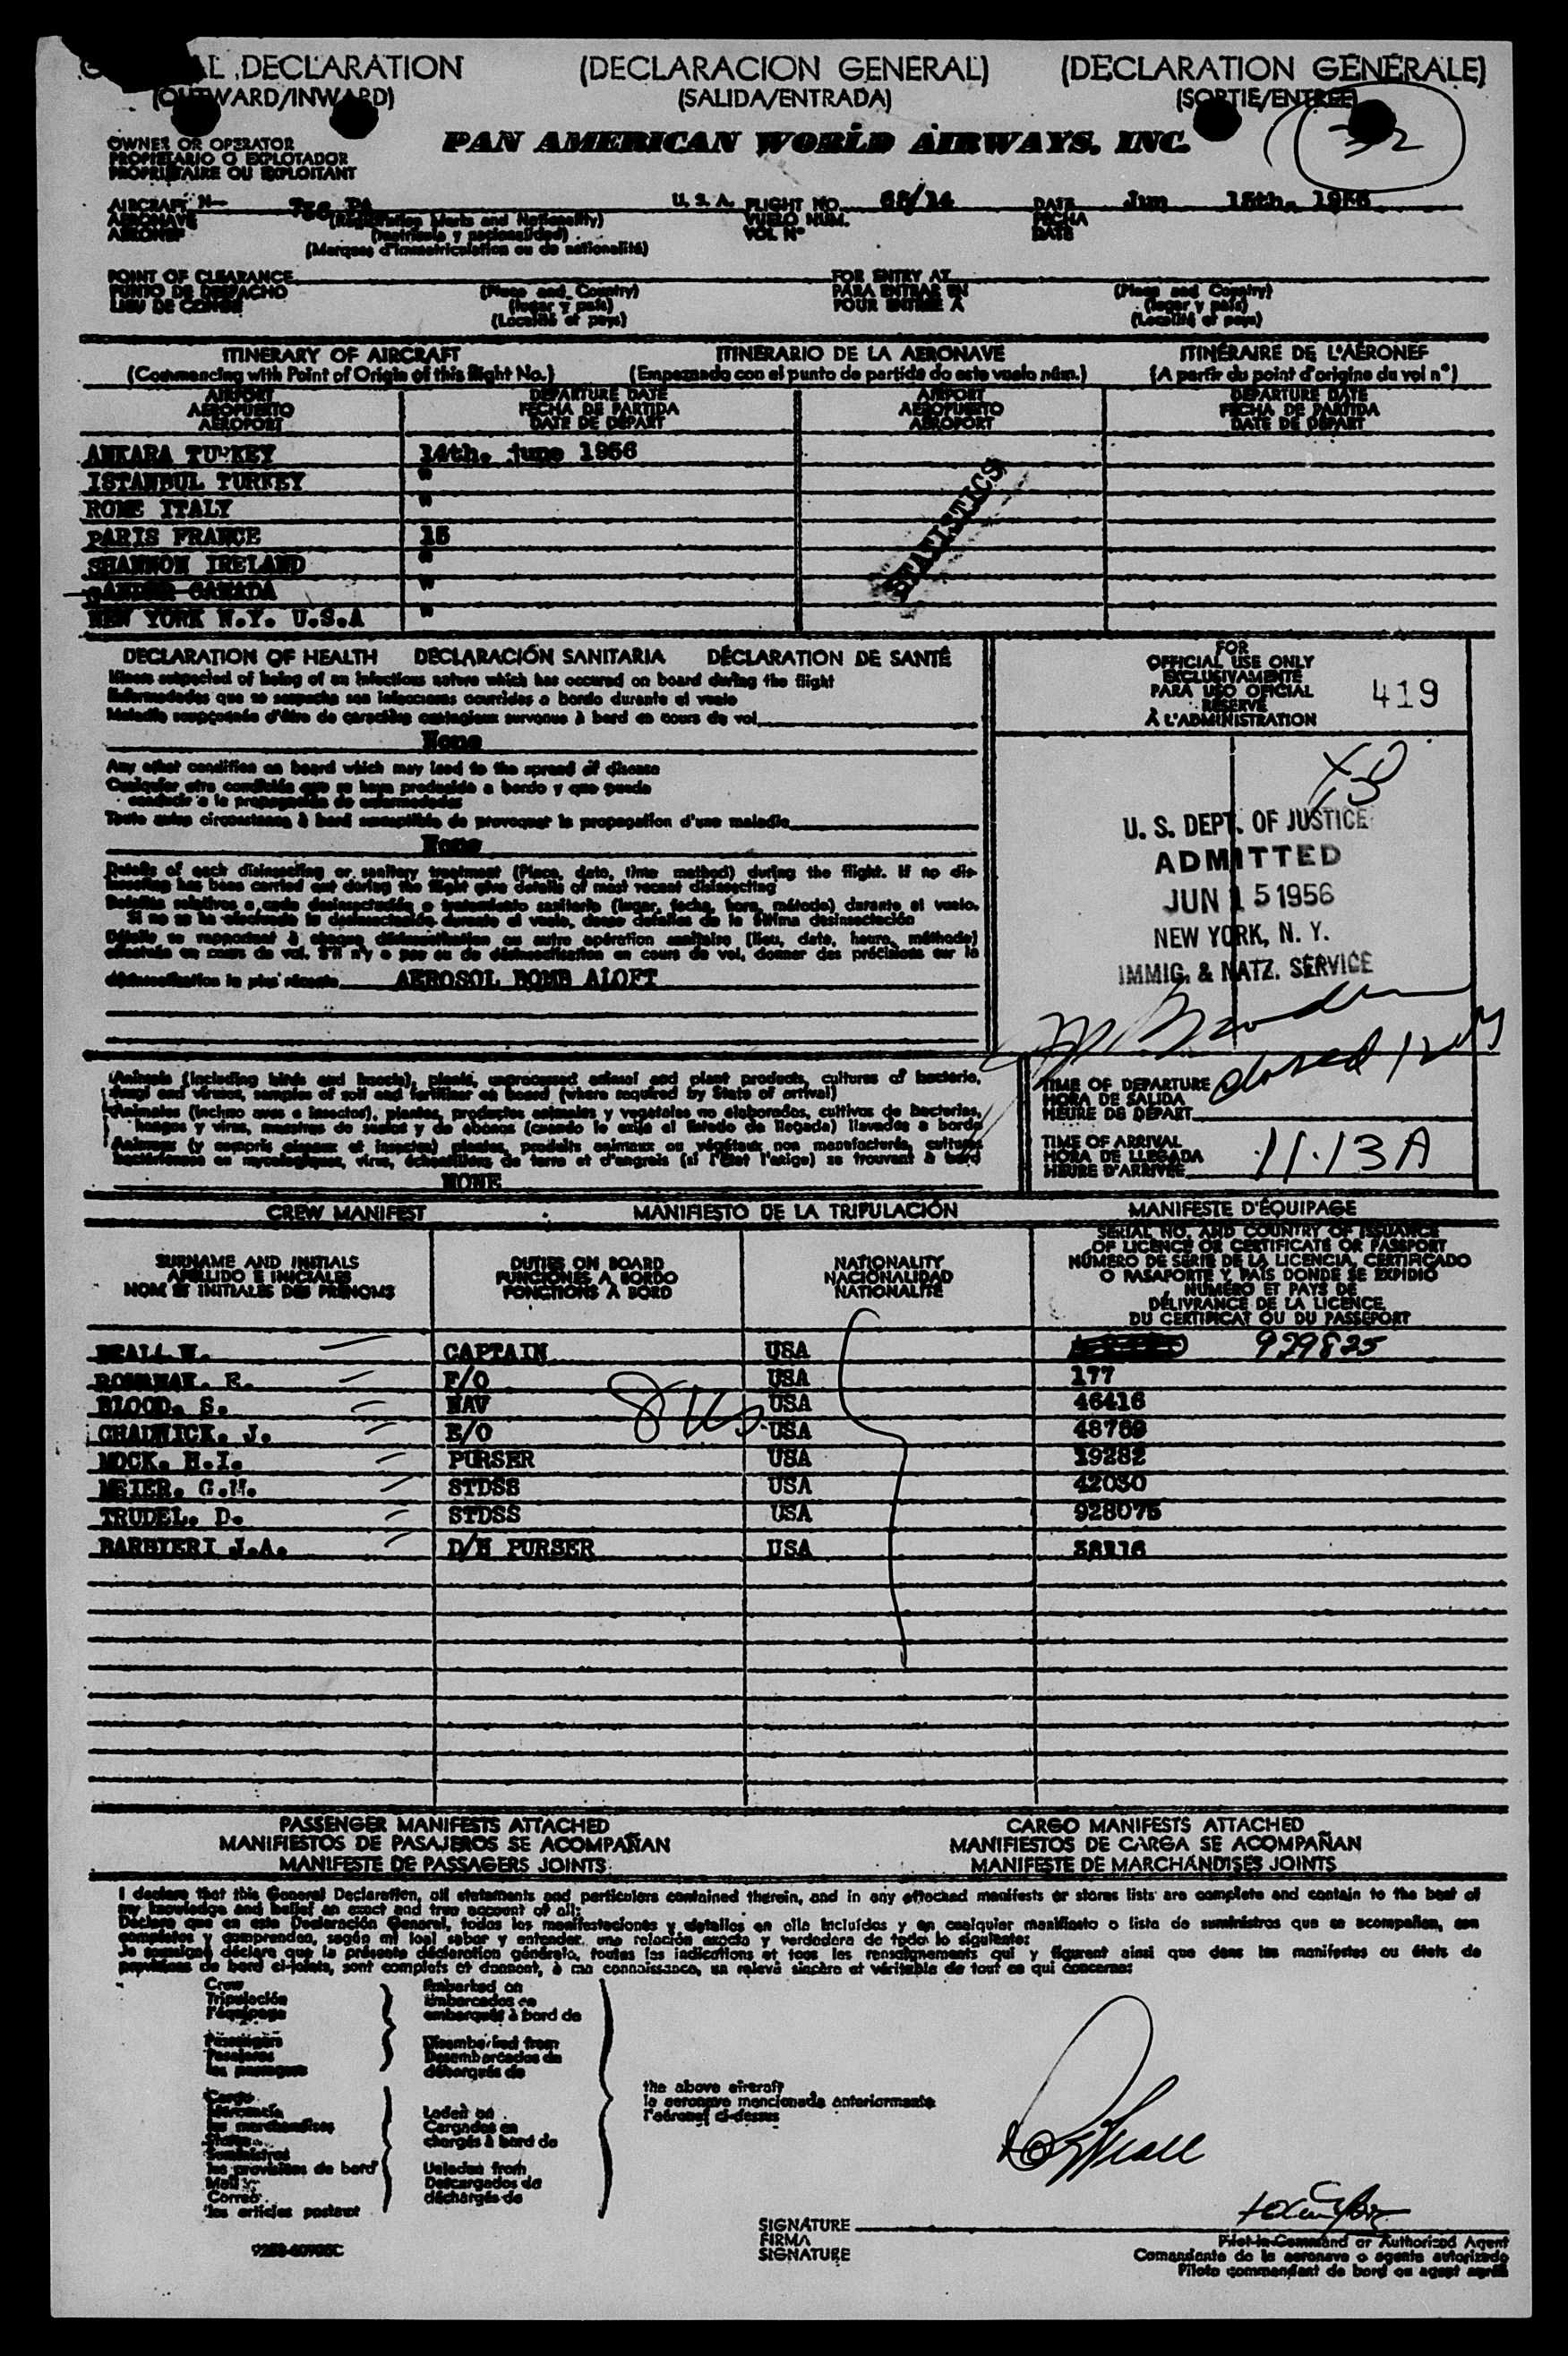 L DECLARATION (DECLARACION GENERAL) (DECLARATION GÉNÉRALE)
(OUTWARD/INWARD) (SALIDA/ENTRADA) (SORTIE/ENTRÉE)
OWNER OR OPERATOR
PROPIETARIO O EXPLOTADOR
PROPRIÉTAIRE OU EXPLOITANT
PAN AMERICAN WORLD AIRWAYS, INC.
32
AIRCRAFT N- PA U.S.A. FLIGHT NO. 65/14 DATE Jun 15th. 1956
AERONAVE (Registration Marks and Nationality) VUELO NUM. FECHA
AERONEF (matrícula y nacionalidad) VOL Nº DATE
(Marques d'immatriculation ou de nationalité)
POINT OF CLEARANCE FOR ENTRY AT
PUNTO DE DESPACHO (Place and Country) PARA ENTRAR EN (Place and Country)
LIEU DE CONGÉ (lugar y país) POUR ENTRÉE A (lugar y país)
(Localité et pays) (Localité et pays)
ITINERARY OF AIRCRAFT ITINERARIO DE LA AERONAVE ITINÉRAIRE DE L'AÉRONEF
(Commencing with Point of Origin of this flight No.) (Empezando con el punto de partida de este vuelo núm.) (A partir du point d'origine du vol n°)
AIRPORT DEPARTURE DATE AIRPORT DEPARTURE DATE
AEROPUERTO FECHA DE PARTIDA AEROPUERTO FECHA DE PARTIDA
AEROPORT DATE DE DÉPART AEROPORT DATE DE DÉPART
ANKARA TURKEY 14th. june 1956
ISTANBUL TURKEY "
ROME ITALY "
PARIS FRANCE 15
SHANNON IRELAND "
GANDER CANADA "
NEW YORK N.Y. U.S.A "
STATISTICS
DECLARATION OF HEALTH DECLARACIÓN SANITARIA DÉCLARATION DE SANTÉ
Illness suspected of being of an infectious nature which has occured on board during the flight
Enfermedades que se sospecha son infecciosas ocurridas a bordo durante el vuelo
Maladie soupçonnée d'être de caractère contagieux survenue à bord en cours de vol
None
Any other condition on board which may lead to the spread of disease
Cualquier otra condición que se haya producido a bordo y que pueda
conducir a la propagación de enfermedades
Toute autre circonstance à bord susceptible de provoquer la propagation d'une maladie
None
Details of each disinsecting or sanitary treatment (Place, date, time method) during the flight. If no dis-
insecting has been carried out during the flight give details of most recent disinsecting
Detalles relativos a cada desinsectación o tratamiento sanitario (lugar, fecha, hora, método) durante el vuelo.
Si no se ha efectuado la desinsectación durante el vuelo, dense detalles de la última desinsectación
Détails se rapportant à chaque désinsectisation ou autre opération sanitaire (lieu, date, heure, méthode)
effectuée en cours de vol. S'il n'y a pas eu de désinsectisation en cours de vol, donner des précisions sur la
désinsectisation la plus récente AEROSOL BOMB ALOFT
FOR
OFFICIAL USE ONLY
EXCLUSIVAMENTE
PARA USO OFICIAL
RÉSERVÉ
À L'ADMINISTRATION
419
U. S. DEPT. OF JUSTICE
ADMITTED
JUN 15 1956
NEW YORK, N. Y.
IMMIG. & NATZ. SERVICE
closed
Animals (including birds and insects), plants, unprocessed animal and plant products, cultures of bacteria,
fungi and viruses, samples of soil and fertilizer on board (where required by State of arrival)
Animales (incluso aves e insectos), plantas, productos animales y vegetales no elaborados, cultivos de bacterias,
hongos y virus, muestras de suelos y de abonos (cuando lo exija el Estado de llegada) llevados a bordo
Animaux (y compris oiseaux et insectes) plantes, produits animaux ou végétaux non manufacturés, cultures
bactériennes ou mycologiques, virus, échantillons de terre et d'engrais (si l'État l'exige) se trouvant à bord
NONE
TIME OF DEPARTURE
HORA DE SALIDA
HEURE DE DÉPART
TIME OF ARRIVAL
HORA DE LLEGADA
HEURE D'ARRIVÉE
11.13A
CREW MANIFEST MANIFIESTO DE LA TRIPULACIÓN MANIFESTE D'ÉQUIPAGE
SURNAME AND INITIALS
APELLIDO E INICIALES
NOM ET INITIALES DES PRÉNOMS
DUTIES ON BOARD
FUNCIONES A BORDO
FONCTIONS À BORD
NATIONALITY
NACIONALIDAD
NATIONALITÉ
SERIAL NO. AND COUNTRY OF ISSUANCE
OF LICENCE OR CERTIFICATE OR PASSPORT
NÚMERO DE SERIE DE LA LICENCIA, CERTIFICADO
O PASAPORTE Y PAÍS DONDE SE EXPIDIÓ
NUMÉRO ET PAYS DE
DÉLIVRANCE DE LA LICENCE,
DU CERTIFICAT OU DU PASSEPORT
BEALL W. CAPTAIN USA 929825
E. F/O USA 177
BLOOD. S. NAV USA 46416
CHADWICK. J. E/O USA 48769
MOCK. H.I. PURSER USA 39282
MEIER. G.M. STDSS USA 42030
TRUDEL. D. STDSS USA 928075
BARBIERI J.A. D/H PURSER USA
PASSENGER MANIFESTS ATTACHED CARGO MANIFESTS ATTACHED
MANIFIESTOS DE PASAJEROS SE ACOMPAÑAN MANIFIESTOS DE CARGA SE ACOMPAÑAN
MANIFESTE DE PASSAGERS JOINTS MANIFESTE DE MARCHANDISES JOINTS
I declare that this General Declaration, all statements and particulars contained therein, and in any attached manifests or stores lists are complete and contain to the best of
my knowledge and belief an exact and true account of all:
Declaro que en esta Declaración General, todas las manifestaciones y detalles en ella incluídos y en cualquier manifiesto o lista de suministros que se acompañen, son
completos y comprenden, según mi leal saber y entender, una relación exacta y verdadera de todo lo siguiente:
Je soussigné déclare que la présente déclaration générale, toutes les indications et tous les renseignements qui y figurent ainsi que dans les manifestes ou états de
provisions de bord ci-joints, sont complets et donnent, à ma connaissance, un relevé sincère et véritable de tout ce qui concerne:
Crew
Tripulación
l'équipage
Passengers
Pasajeros
les passagers
Cargo
Mercancía
les marchandises
Stores
Suministros
les provisions de bord
Mail
Correo
les articles postaux
Embarked on
Embarcados en
embarqués à bord de
Disembarked from
Desembarcados de
débarqués de
Laden on
Cargados en
chargés à bord de
Unladen from
Descargados de
déchargés de
the above aircraft
la aeronave mencionada anteriormente
l'aéronef ci-dessus
SIGNATURE
FIRMA
SIGNATURE
Pilot-in-Command or Authorized Agent
Comandante de la aeronave o agente autorizado
Pilote commandant de bord ou agent agréé